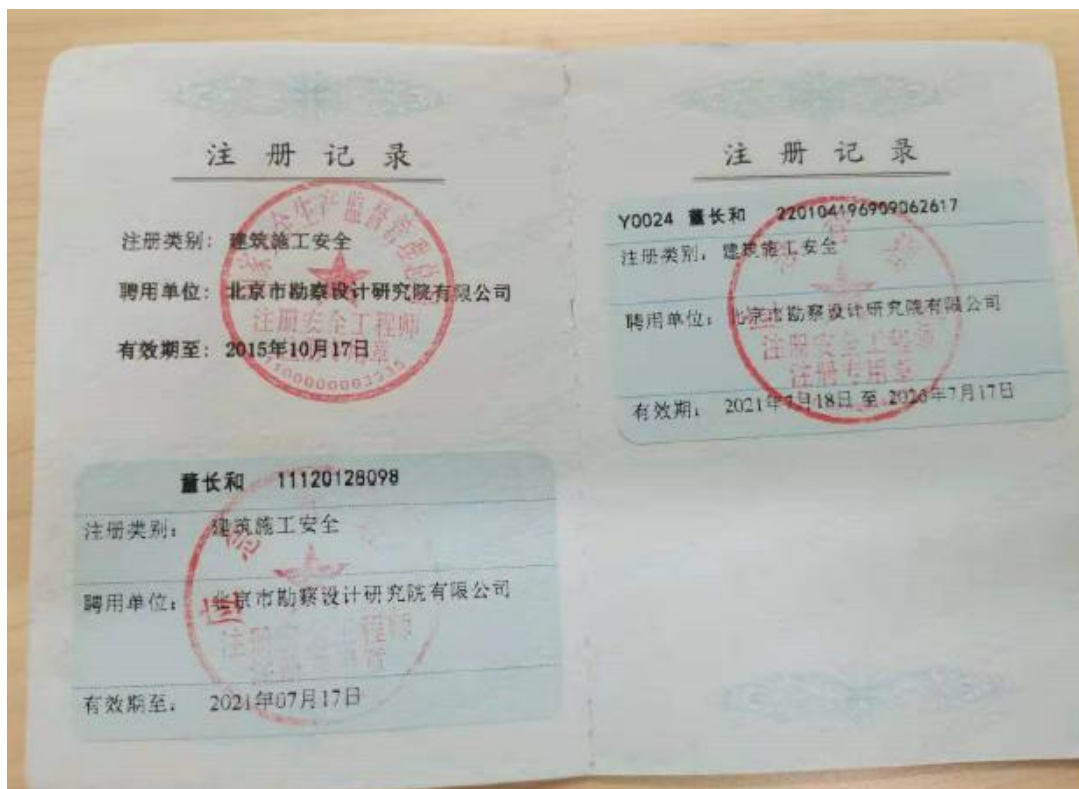 注册记录
注册类别：建筑施工安全
聘用单位：北京市勘察设计研究院有限公司
有效期至：2015年10月17日
董长和 11120128098
注册类别：建筑施工安全
聘用单位：北京市勘察设计研究院有限公司
有效期至：2021年07月17日
注册记录
Y0024 董长和 220104196909062617
注册类别：建筑施工安全
聘用单位：北京市勘察设计研究院有限公司
有效期：2021年7月18日 至 2026年7月17日
注册安全工程师
注册安全工程师
注册专用章